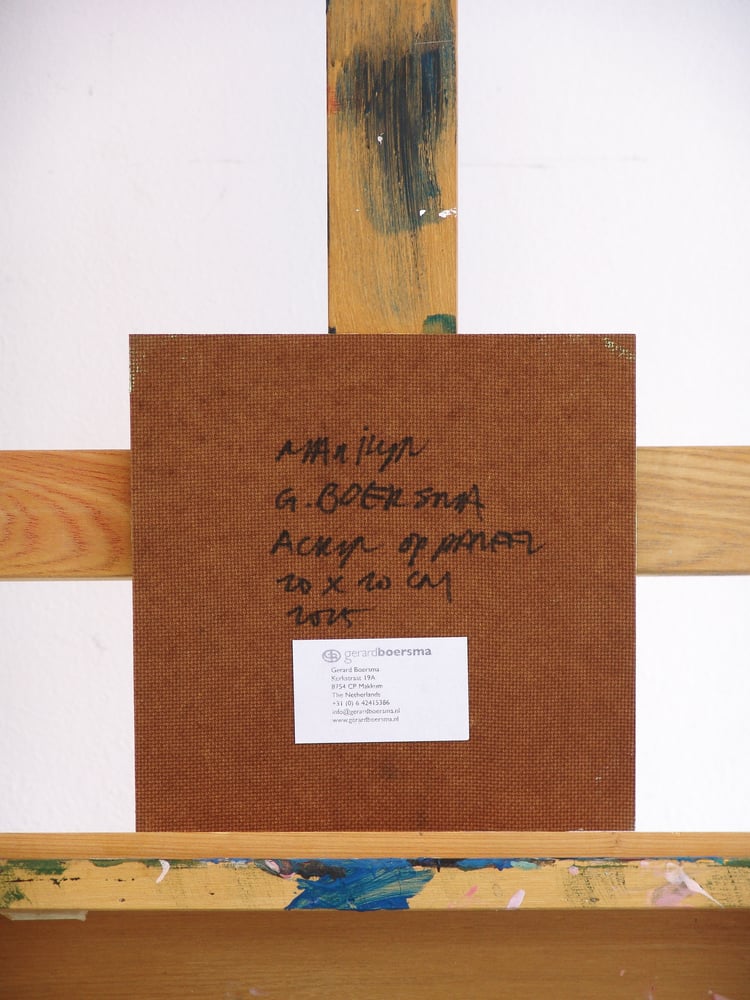 Marilyn
G. BOERSMA
ACRYL OP PANEEL
20 X 20 CM
2015
gerardboersma
Gerard Boersma
Kerkstraat 19A
8754 CP Makkum
The Netherlands
+31 (0) 6 42415386
info@gerardboersma.nl
www.gerardboersma.nl